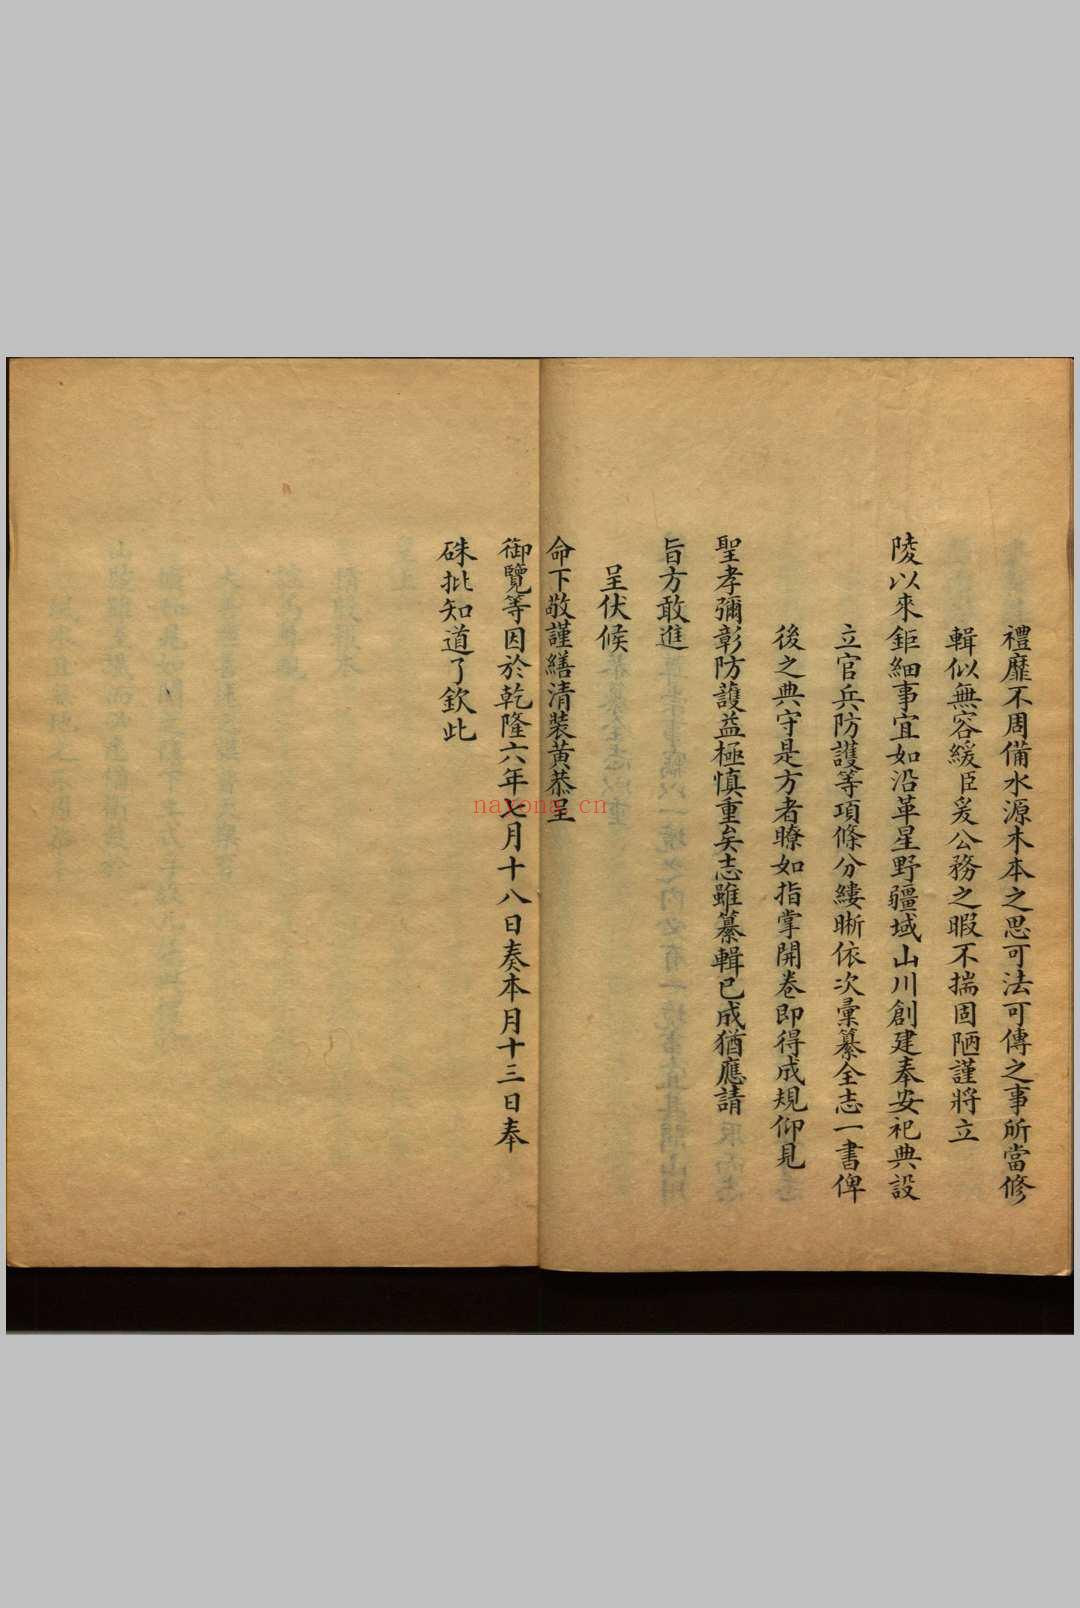 禮靡不周備水源木本之思可法可傳之事所當修
輯似無容緩臣爰公務之暇不揣固陋謹將立
陵以來鉅細事宜如沿革星野疆域山川創建奉安祀典設
立官兵防護等項條分縷晰依次彙纂全志一書俾
後之典守是方者瞭如指掌開卷即得成規仰見
聖孝彌彰防護益極慎重矣志雖纂輯已成猶應請
旨方敢進
呈伏候
命下敬謹繕清裝黃恭呈
御覽等因於乾隆六年七月十八日奏本月十三日奉
硃批知道了欽此
nayona.cn